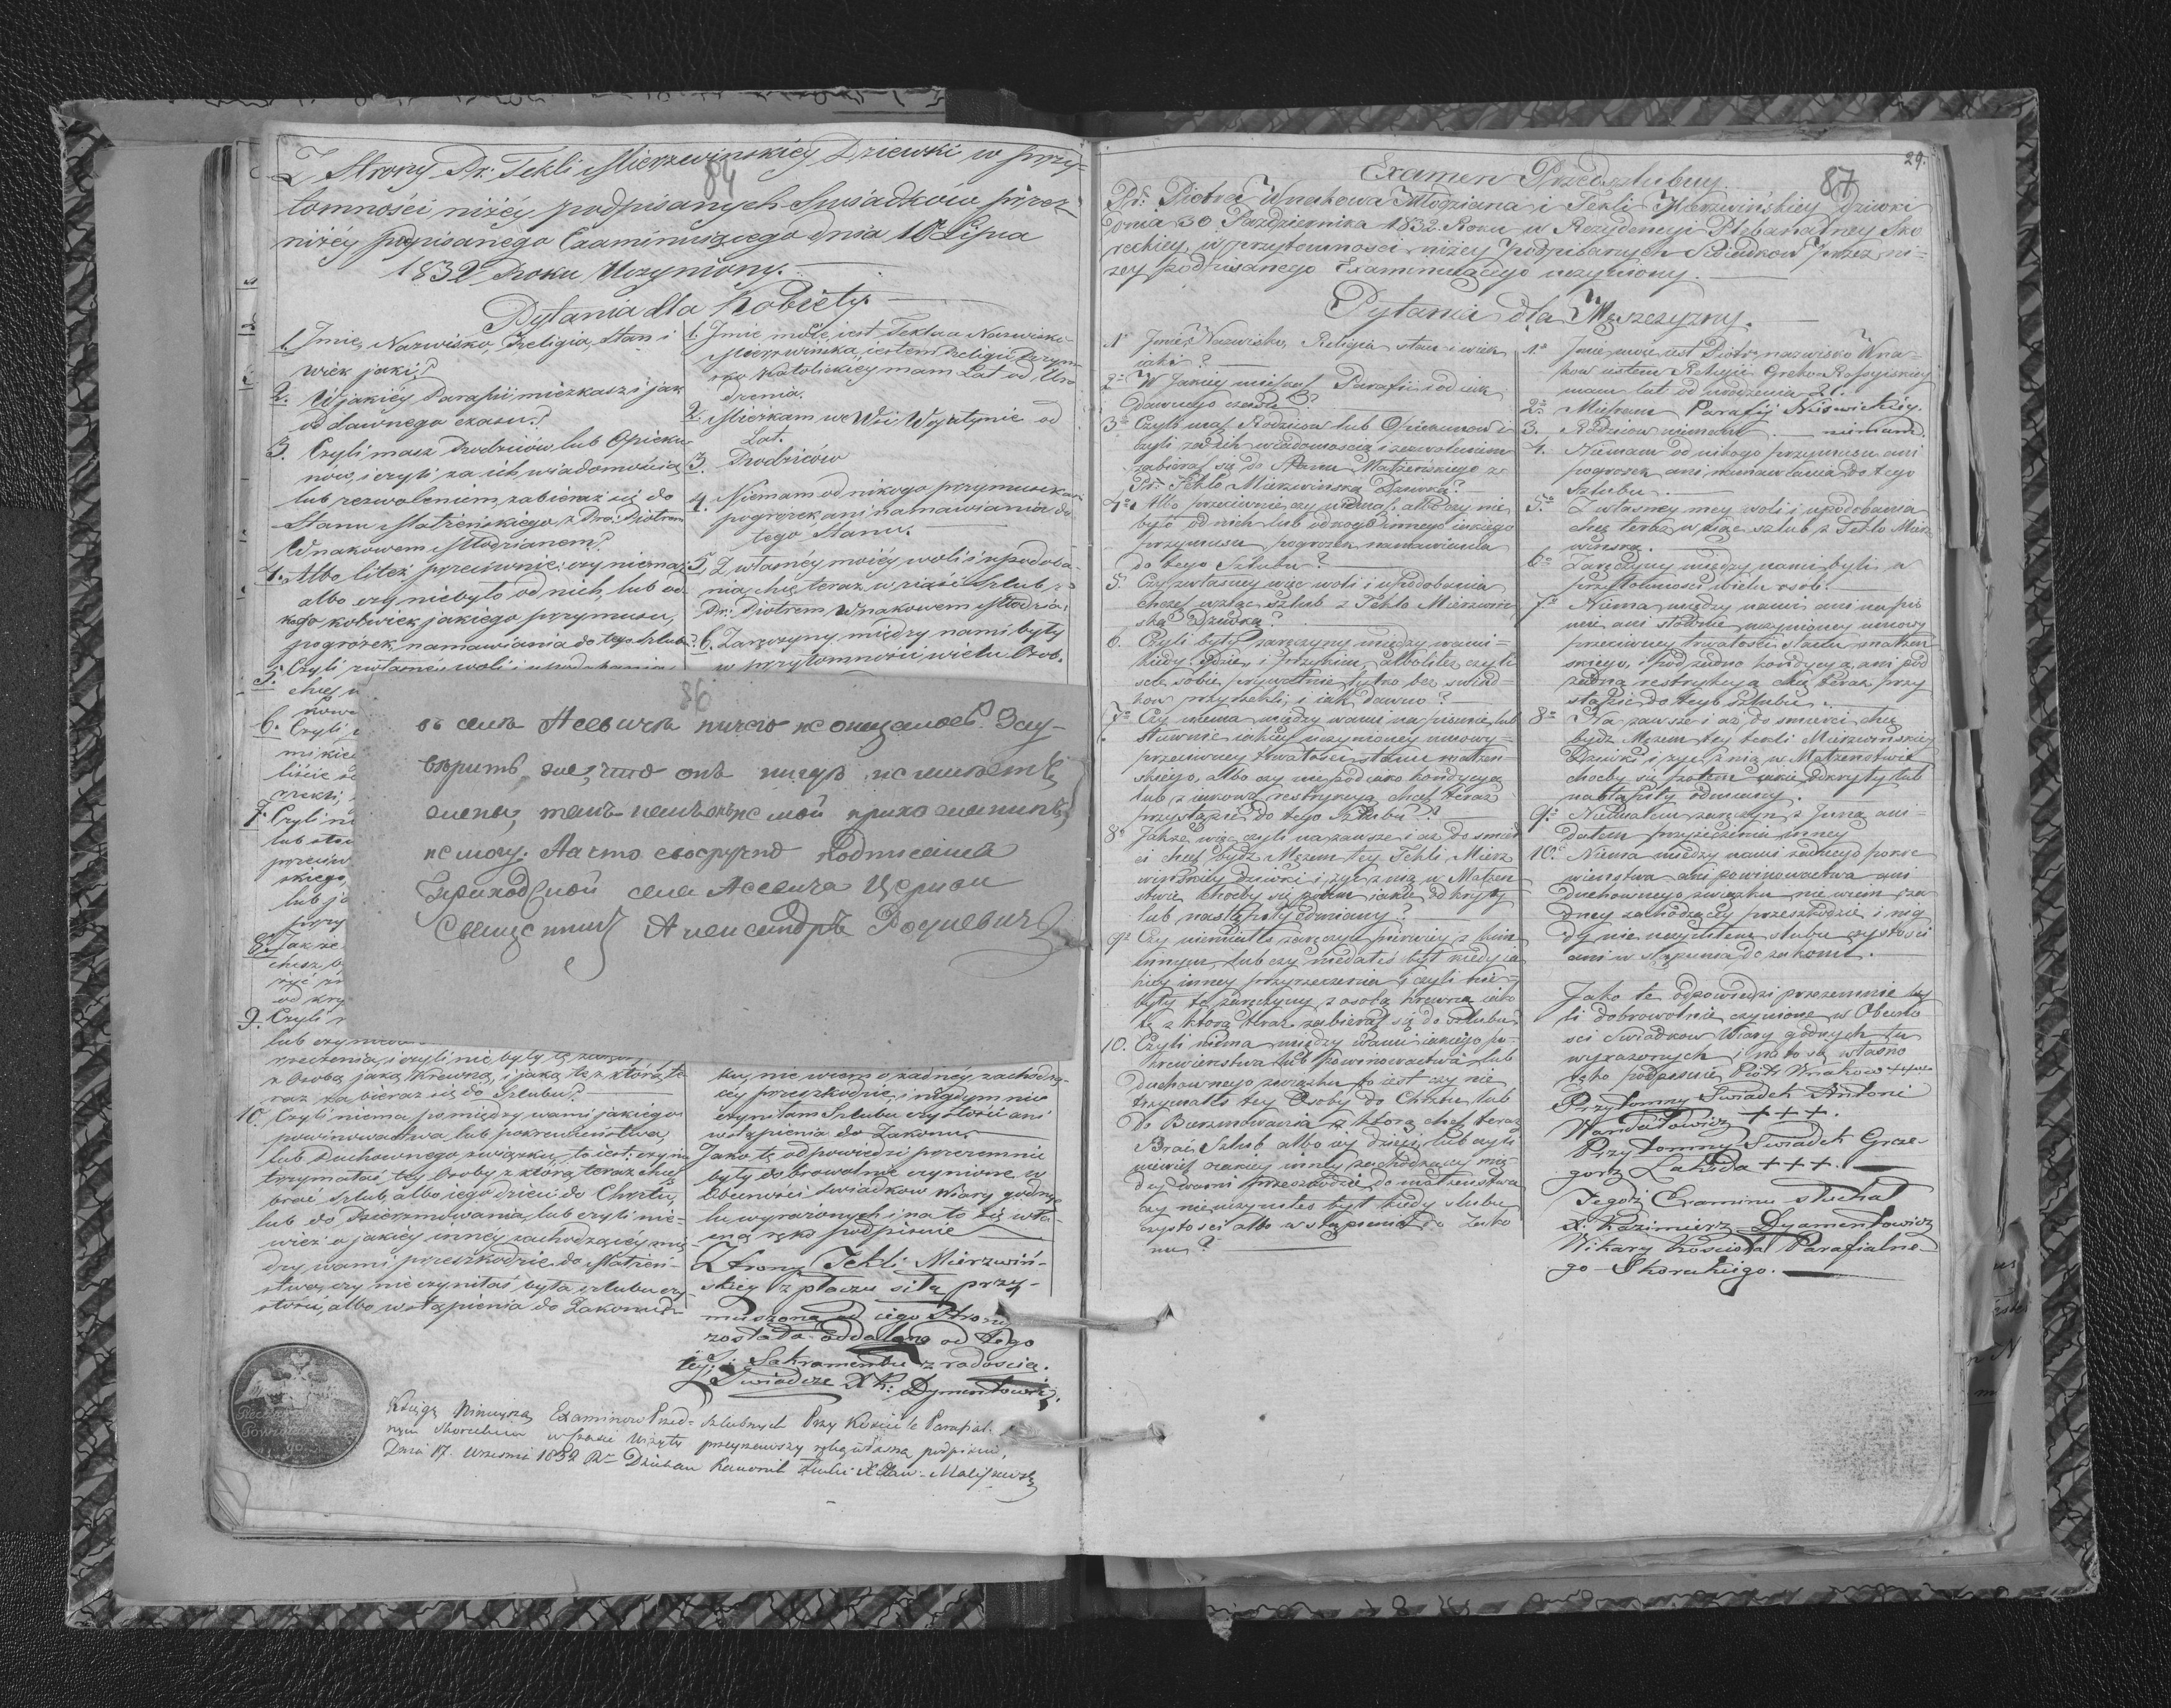 Z Strony Pr: Tekli Mierzwinskiey Dziewki w przy-
tomności niżéy podpisanych Swiadków przez
niżéy podpisanego Examinuiącego dnia 10 Lipca
1832 Roku Uczyniony.
84
Pytania dla Kobiéty.
1. Jmie, Nazwisko, Religia, Stan i
wiek jaki?
2. W jakiéy Parafii mieszkasz i jak
od dawnego czasu?
3. Czyli masz Rodziców lub Opieku-
nów, i czyli za ich wiadomością
lub zezwoleniem zabierasz się do
Stanu Małżeńskiego z Pr: Piotrem
Wnakowem Młodzianem?
4. Albo li też przeciwnie, czy niemasz
albo czy niebyło od nich, lub od
kogo kolwiek jakiego przymusu,
pogróżek, namawiania do tego szlubu?
5. Czyli z własnéy woli i upodobania
chcesz
6. Czyli
7. Czyli
lub
przeciw
skiego,
lub
8. Jakże
chcesz
żyć
od kry
9. Czyli
lub czy
rzeczenia, i czyli nie były te
z Osobą jaką Krewną, i jaką tą z którą te-
raz zabierasz się do Szlubu?
10. Czyli niema pomiędzy wami jakiego
powinowactwa lub pokrewieństwa,
lub Duchownego związku, to iest, czy nie
trzymałaś tey Osoby z którą teraz chcesz
brać szlub, albo iego dzieci do Chrztu,
lub do Bierzmowania, lub czyli nie-
wiesz o jakiéy innéy zachodzącéy mię-
dzy wami przeszkodzie do Małżeń-
stwa, czy nie czyniłaś była szlubu czy-
stości, albo wstąpienia do Zakonu?
1. Jmie moie iest Tekla a Nazwisko
Mierzwinska, iestem Religii Rzym-
sko Katolickiey mam Lat od Uro-
dzenia.
2. Mieszkam we Wsi Woyatynie od
Lat.
3. Rodziców
4. Niemam od nikogo przymusu ani
pogróżek ani namawiania do
tego Stanu.
5. Z własnéy moiéy woli i upodoba-
nia, chcę teraz wziąść Szlub z
Pr: Piotrem Wnakowem Młodzian:
6. Zaręczyny między nami były
w przytomności wielu Osob.
ku, nie wiem o żadnéy zachodzą-
céy przeszkodzie, i nigdym nie
czyniłam Szlubu czystości ani
wstąpienia do Zakonu.
Jako te odpowiedzi przezemnie
były dobrowolnie czynione w
Obecności Swiadków Wiary godnych
tu wyrażonych i na to się wła-
sną ręką podpisuię
Z strony Tekli Mierzwiń-
skiey z płaczu siłą przy-
muszona od iego Strony
została oddalona od tego
tey: Sakramentu z radością.
Swiadczę X K: Dyamentowicz.
86
въ селѣ Асевичѣ ничего не
вѣрить, что онъ
жены, мой прихожанинъ
не могу. На что своеручно подписался
Приходской села Асевича Церкви
Священникъ Александръ
Księgę Ninieyszą Examinow Przed-szlubnych Przy Kościele Parafial-
nym Skoreckim w czasie Wizyty przeyrzawszy ręką własną podpisuię
Dnia 17. Wrzesnia 1832 Rn Dziekan Kanonik
29.
87
Examen Przedszlubny
Pr: Piotra Wnakowa Młodziana i Tekli Mierzwińskiey Dziwki
Dnia 30 Pazdziernika 1832 Roku w Rezydencyi Plebanalney Sko
reckiey, w przytomności niżey podpisanych Swiadkow przez ni-
żey podpisanego Examinuiącego uczyniony.
Pytania dla Mężczyzny.
1o Jmie, Nazwisko, Religia stan i wiek
iaki?
2o W Jakiey mieszkasz Parafii i od iak
dawnego czasu?
3o Czyli masz Rodzicow lub Opiekunow i
czyli za ich wiadomoscią i zezwoleniem
zabierasz się do Stanu Małżenskiego z
Pr: Teklą Mierzwinską Dziewką?
4o Albo przeciwnie czy niemasz albo czy nie
było od nich lub od kogo innego iakiego
przymusu pogrozek namawiania
do tego Szlubu?
5. Czy z własney więc woli i upodobania
chcesz wziąć szlub z Teklą Mierzwin
ską Dziewką?
6. Czyli były zaręczyny między wami
kiedy, gdzie, i przy kim, albo li też czyli
scie sobie prywatnie tylko bez swiad-
kow przyrzekli, i iak dawno?
7o Czy niema między wami na pismie lub
słownie iakiey uczynioney umowy
przeciwney trwałosci stanu małżen-
skiego, albo czy nie pod iaką kondycyą
lub z iakową restrykcyą chcesz teraz
przystąpić do tego Szlubu?
8o Jakże więc czyli na zawsze i aż do smier
ci chcesz bydz Mężem tey Tekli Mierz
winskiey Dziewki i żyć z nią w Małżen
stwie choćby się potem iakie odkryły
lub nastąpiły odmiany?
9o Czy niemiałeś zaręczyn pierwiey z kim
innym, lub czy niedałeś był kiedy ia
kiey inney przyrzeczenia i czyli nie
były te zaręczyny z osobą krewną iako
tą z którą teraz zabierasz się do szlubu?
10. Czyli niema między wami iakiego po-
krewienstwa lub powinowactwa lub
duchownego związku to iest czy nie
trzymałeś tey Osoby do Chrztu lub
do Bierzmowania z którą chcesz teraz
Brać Szlub albo iey dzieci, lub czyli
niewiesz o iakiey inney zachodzącey mię
dzy wami przeszkodzie do małżenstwa
czy nieuczyniłeś był kiedy slubu
czystosci albo wstąpienia do Zako
nu?
1o Jmie moie iest Piotr nazwisko Wna-
kow iestem Religii Greko-Rossyiskiey
mam lat od urodzenia 21.
2o Mieszkam Parafij Nieswickiey.
3. Rodzicow niemam niemam.
4. Niemam od nikogo przymusu ani
pogrozek ani namawiania do tego
Szlubu.
5o Z własney mey woli i upodobania
chcę teraz wziąć szlub z Teklą Mierz
winską.
6o Zaręczyny między nami byli w
przytomnosci wielu osob.
7o Niema między nami ani na pis
mie ani słownie uczynioney umowy
przeciwney trwałości stanu małżen
skiego, i pod żadną kondycyą, ani pod
żadną restrykcyą chcę teraz przy
stąpić do tego szlubu.
8o Na zawsze i aż do smierci chcę
bydz Mężem tey Tekli Mierzwinskiey
Dziewki i żyć z nią w Małżenstwie
choćby się potem iakie odkryły lub
nastąpiły odmiany.
9o Niemiałem zaręczyn z Jnną ani
dałem przyrzeczenia inney
10o Niema między nami żadnego pokre
wienstwa ani powinowactwa ani
duchownego związku nie wiem o ża
dney zachodzącey przeszkodzie i nig
dy nie uczyniłem slubu czystości
ani wstąpienia do zakonu.
Jako te odpowiedzi przezemnie by
li dobrowolnie czynione w Obecno
ści Swiadkow Wiary godnych tu
wyrażonych i na to się własną
ręką podpisuię Piotr Wnakow +++
Przytomny Swiadek Antoni
Wandałowicz +++.
Przytomny Swiadek Grze-
gorz Łahida +++.
Tegoż Examinu słuchał
X. Kazimierz Dyamentowicz
Wikary Kościoła Parafialne-
go Skoreckiego.